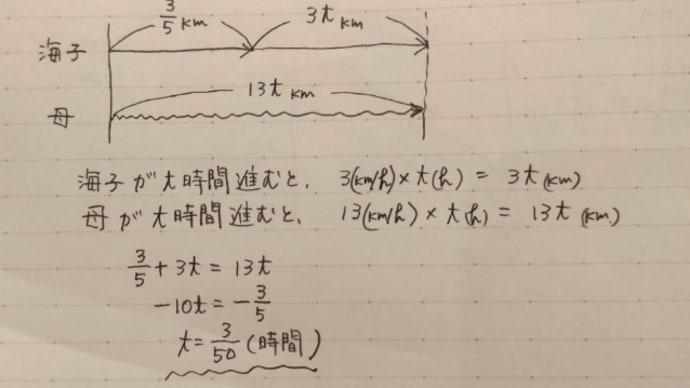 3/5 km 3t km
海子
13t km
母
海子がt時間進むと、 3(km/h)×t(h) = 3t (km)
母がt時間進むと、 13(km/h)×t(h) = 13t (km)
3/5 + 3t = 13t
-10t = -3/5
t = 3/50 (時間)